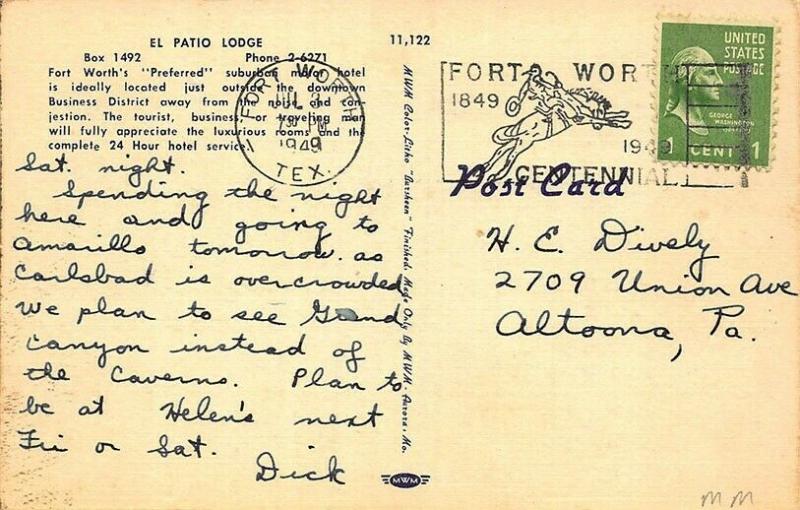 EL PATIO LODGE
Box 1492 Phone 2-6271
Fort Worth's "Preferred" suburban motor hotel
is ideally located just outside the downtown
Business District away from the noise and con-
jestion. The tourist, business, or traveling man
will fully appreciate the luxurious rooms and the
complete 24 Hour hotel service.
11,122
FORT WORTH
JUL 3
PM
1949
TEX.
FORT WORTH
1849
1949
CENTENNIAL
UNITED
STATES
POSTAGE
GEORGE
WASHINGTON
1 CENT 1
Post Card
Sat. night.
Spending the night
here and going to
Amarillo tomorrow. as
Carlsbad is overcrowded
we plan to see Grand
Canyon instead of
the Caverns. Plan to
be at Helen's next
Fri or Sat.
Dick
MWM Color-Litho "Varsheen" Finished. Made Only By MWM, Aurora, Mo.
MWM
H. E. Dively
2709 Union Ave
Altoona, Pa.
MM